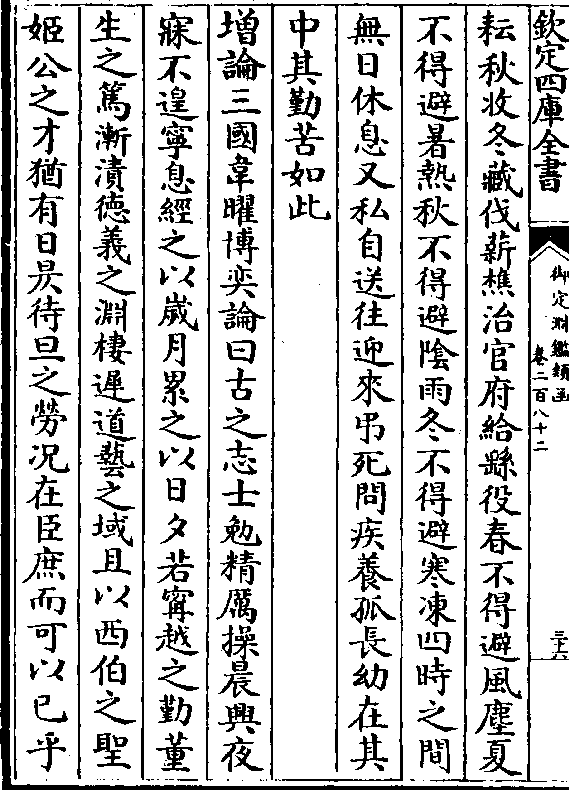 欽定四庫全書
御定淵鑑類函
卷二百八十二
三十六
耘秋收冬藏伐薪樵治官府給繇役春不得避風塵夏
不得避暑熱秋不得避陰雨冬不得避寒凍四時之間
無日休息又私自送往迎來弔死問疾養孤長幼在其
中其勤苦如此
增論三國韋曜博奕論曰古之志士勉精厲操晨興夜
寐不遑寧息經之以嵗月累之以日夕若甯越之勤董
生之篤漸漬德義之淵棲遲道藝之域且以西伯之聖
姬公之才猶有日昃待旦之勞况在臣庶而可以已乎